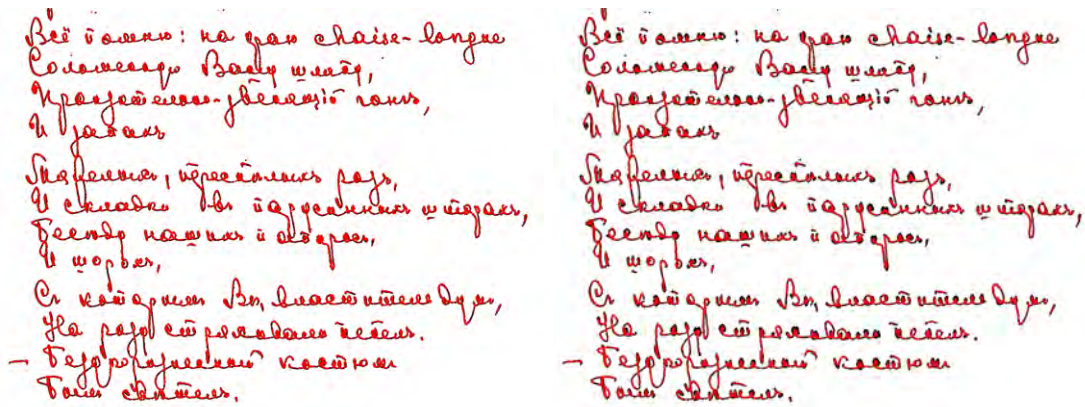 Всё помню: на краю chaise-longue
Соломенную Вашу шляпу,
Пронзительно-звенящій гонгъ,
И запахъ
Тяжелыхъ, переспѣлыхъ розъ,
И складки въ парусинныхъ шторахъ,
Бесѣду нашихъ папиросъ,
И шорохъ,
Съ которымъ Вы, властитель думъ,
На розу стряхивали пепелъ.
— Безукоризненный костюмъ
Былъ свѣтелъ.
Всё помню: на краю chaise-longue
Соломенную Вашу шляпу,
Пронзительно-звенящій гонгъ,
И запахъ
Тяжелыхъ, переспѣлыхъ розъ,
И складки въ парусинныхъ шторахъ,
Бесѣду нашихъ папиросъ,
И шорохъ,
Съ которымъ Вы, властитель думъ,
На розу стряхивали пепелъ.
— Безукоризненный костюмъ
Былъ свѣтелъ.